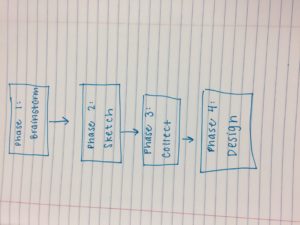 Phase 1:
Brainstorm
Phase 2:
Sketch
Phase 3:
Collect
Phase 4:
Design